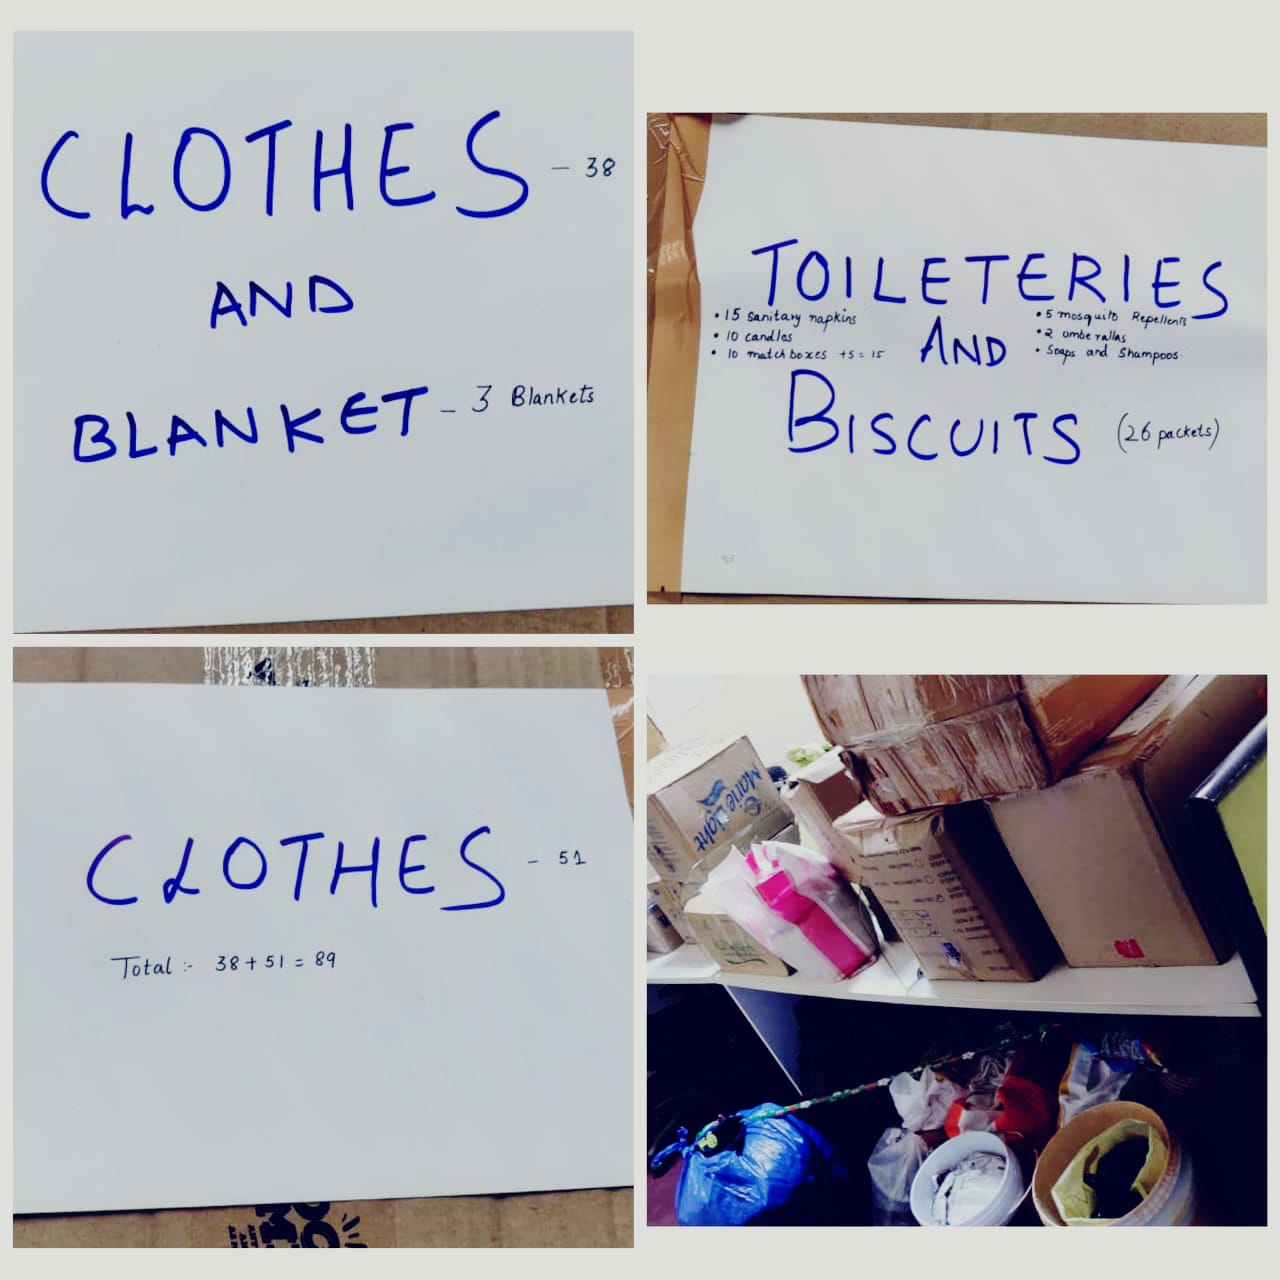 CLOTHES - 38
AND
BLANKET - 3 Blankets
TOILETERIES
• 15 sanitary napkins
• 10 candles
• 10 match boxes +5 = 15
AND
• 5 mosquito Repellents
• 2 umberallas
• Soaps and Shampoos
BISCUITS (26 packets)
CLOTHES - 51
Total :- 38 + 51 = 89
Marie Light